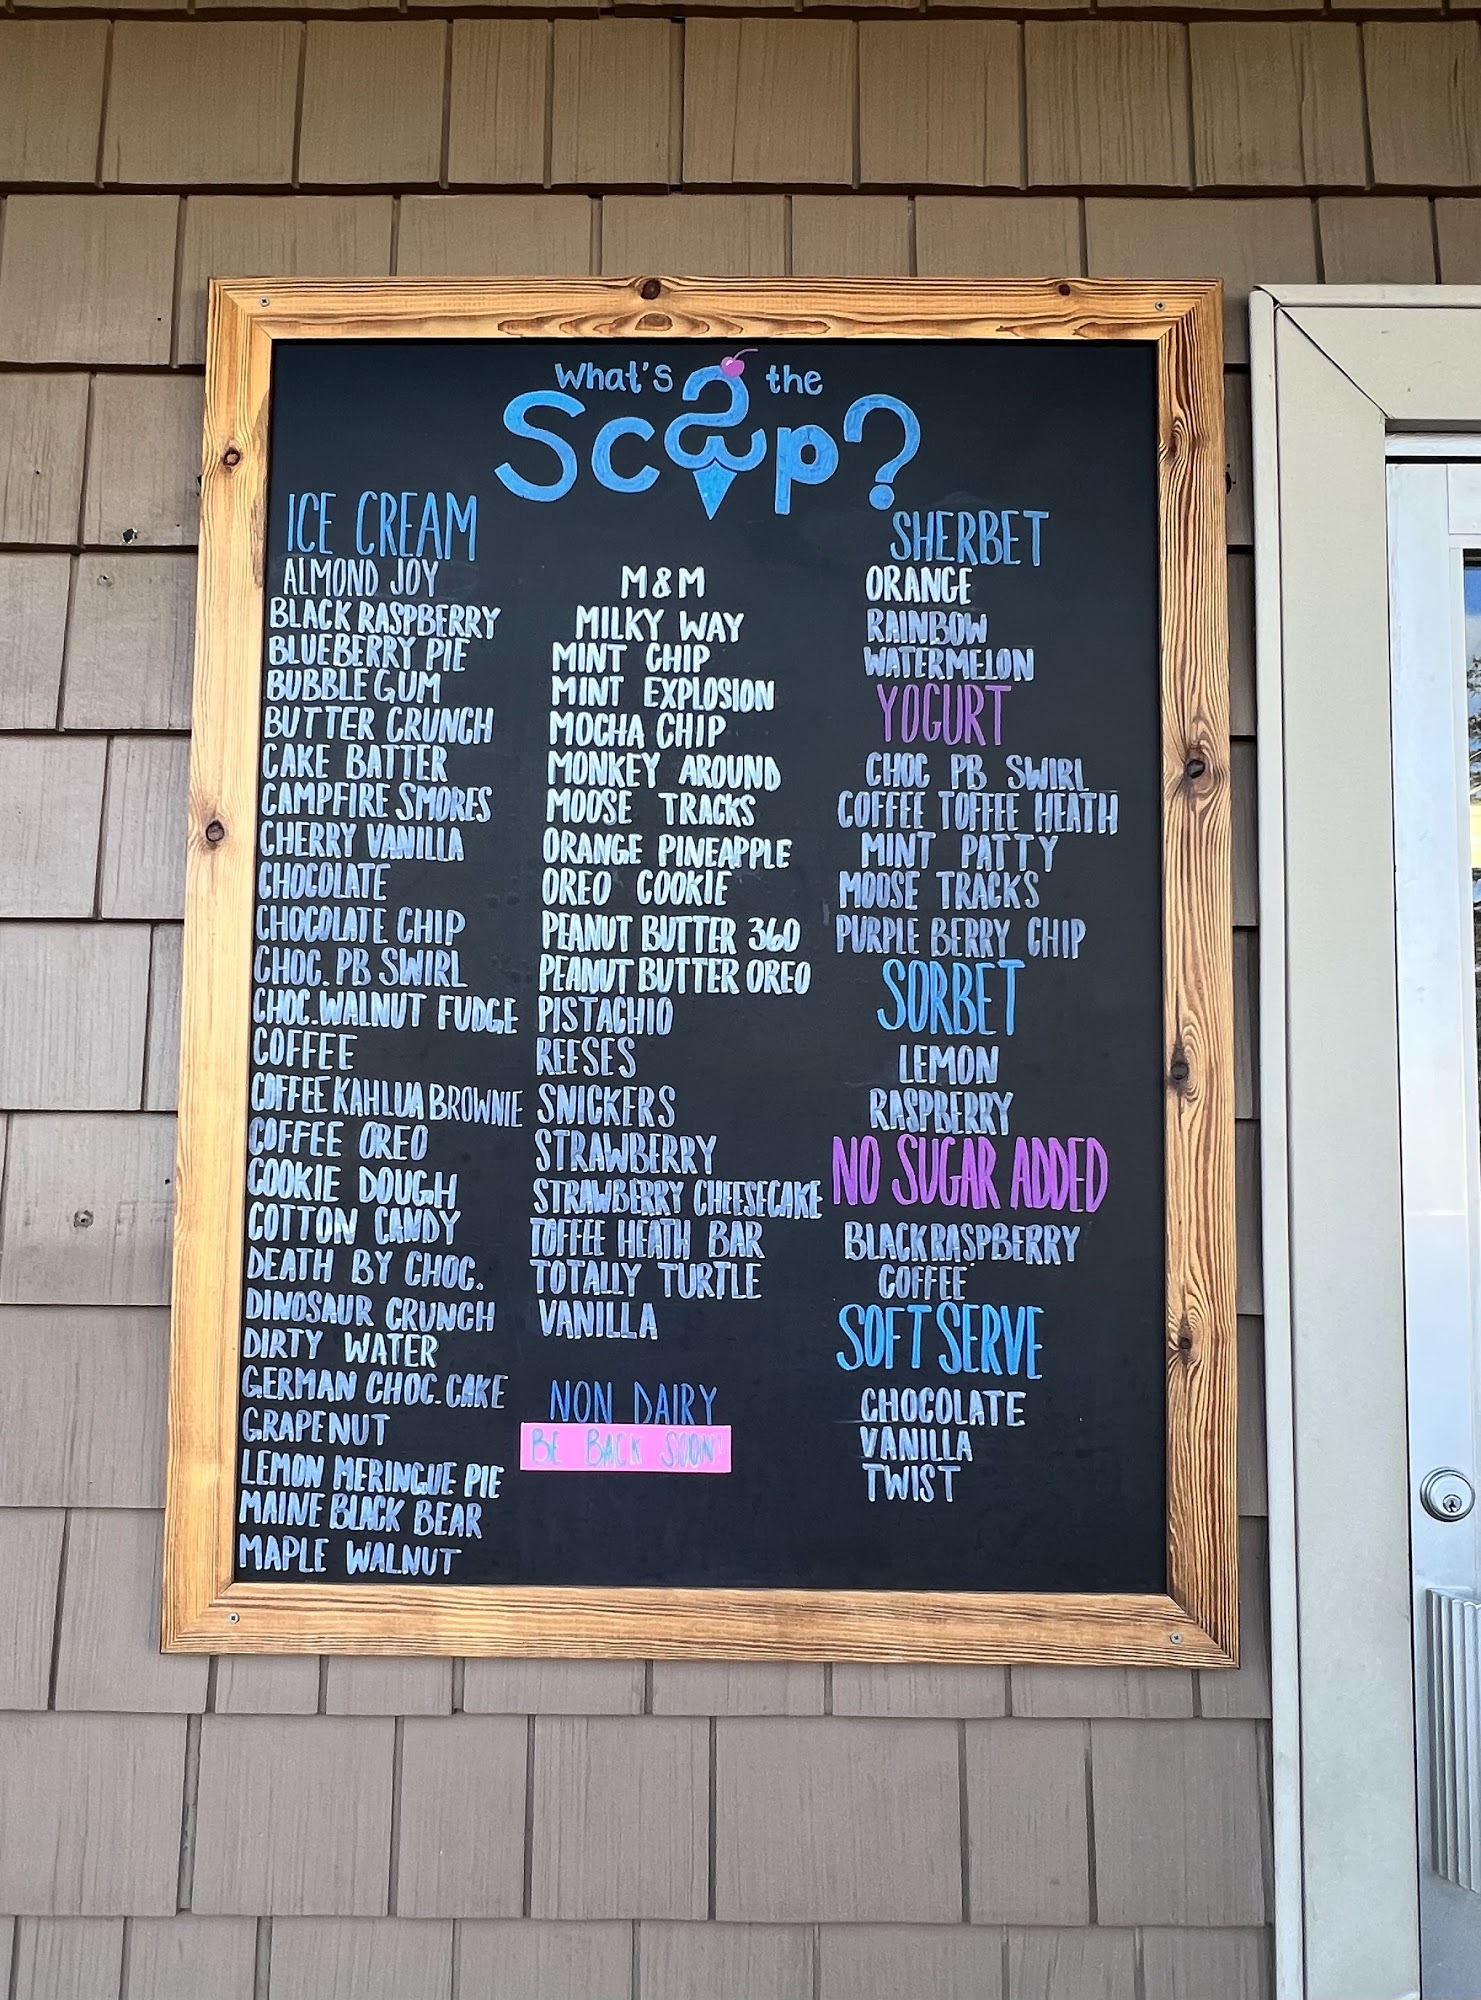 What's the
Scoop?
ICE CREAM
ALMOND JOY
BLACK RASPBERRY
BLUEBERRY PIE
BUBBLE GUM
BUTTER CRUNCH
CAKE BATTER
CAMPFIRE SMORES
CHERRY VANILLA
CHOCOLATE
CHOCOLATE CHIP
CHOC. PB SWIRL
CHOC. WALNUT FUDGE
COFFEE
COFFEE KAHLUA BROWNIE
COFFEE OREO
COOKIE DOUGH
COTTON CANDY
DEATH BY CHOC.
DINOSAUR CRUNCH
DIRTY WATER
GERMAN CHOC. CAKE
GRAPENUT
LEMON MERINGUE PIE
MAINE BLACK BEAR
MAPLE WALNUT
M & M
MILKY WAY
MINT CHIP
MINT EXPLOSION
MOCHA CHIP
MONKEY AROUND
MOOSE TRACKS
ORANGE PINEAPPLE
OREO COOKIE
PEANUT BUTTER 360
PEANUT BUTTER OREO
PISTACHIO
REESES
SNICKERS
STRAWBERRY
STRAWBERRY CHEESECAKE
TOFFEE HEATH BAR
TOTALLY TURTLE
VANILLA
NON DAIRY
BE BACK SOON
SHERBET
ORANGE
RAINBOW
WATERMELON
YOGURT
CHOC PB SWIRL
COFFEE TOFFEE HEATH
MINT PATTY
MOOSE TRACKS
PURPLE BERRY CHIP
SORBET
LEMON
RASPBERRY
NO SUGAR ADDED
BLACK RASPBERRY
COFFEE
SOFT SERVE
CHOCOLATE
VANILLA
TWIST